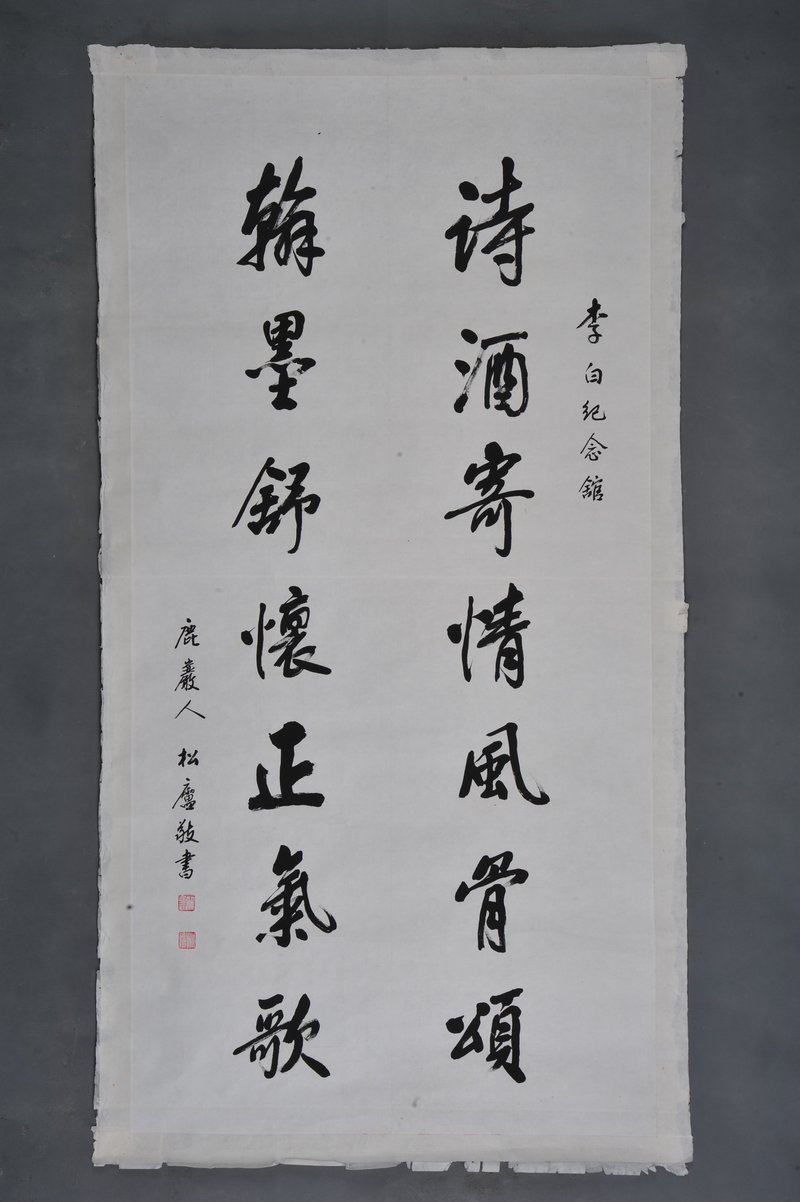 李白纪念舘
诗酒寄情風骨頌
翰墨舒懷正氣歌
鹿巖人 松廬敬書